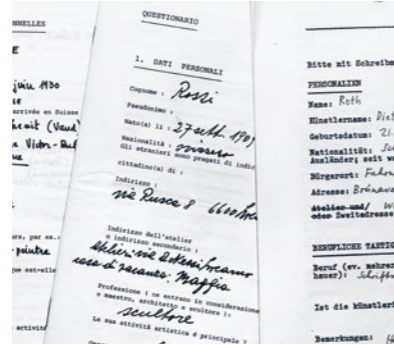 NNELLES
E
juin 1930
arrivée en Suisse
(Vaud)
Victor-
ure, par ex.:
-peintre
que est-elle
activité
QUESTIONARIO
1. DATI PERSONALI
Cognome : Rossi
Pseudonimo :
Nato(a) il : 27 sett. 190
Nazionalità : svizzero
gli stranieri sono pregati di indic
cittadino(a) di :
Indirizzo :
via Rusca 8 6600
Indirizzo dell'atelier
o indirizzo secondario :
atelier: via
casa di vacanza: Maggia
Professione ( ne entrano in considerazione
o maestro, architetto e scultore ):
scultore
La sua attività artistica è principale ?
Bitte mit Schreibm
PERSONALIEN
Name: Roth
Künstlername: Diet
Geburtsdatum: 21.
Nationalität: Sc
Ausländer; seit w
Bürgerort:
Adresse:
Atelier und/
oder Zweitadresse
BERUFLICHE TAETIG
Beruf (ev. mehrer
hauer): Schrifts
Ist die künstler
Bemerkungen: H